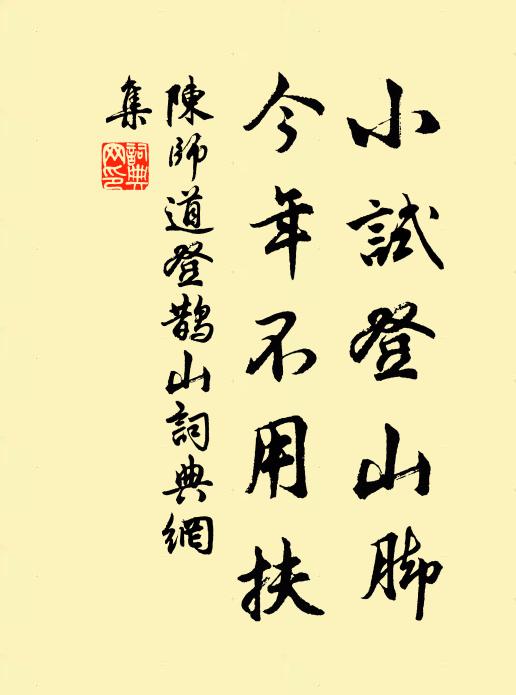 小試登山脚
今年不用扶
陳師道登鵲山詞典網
集
詞典網印